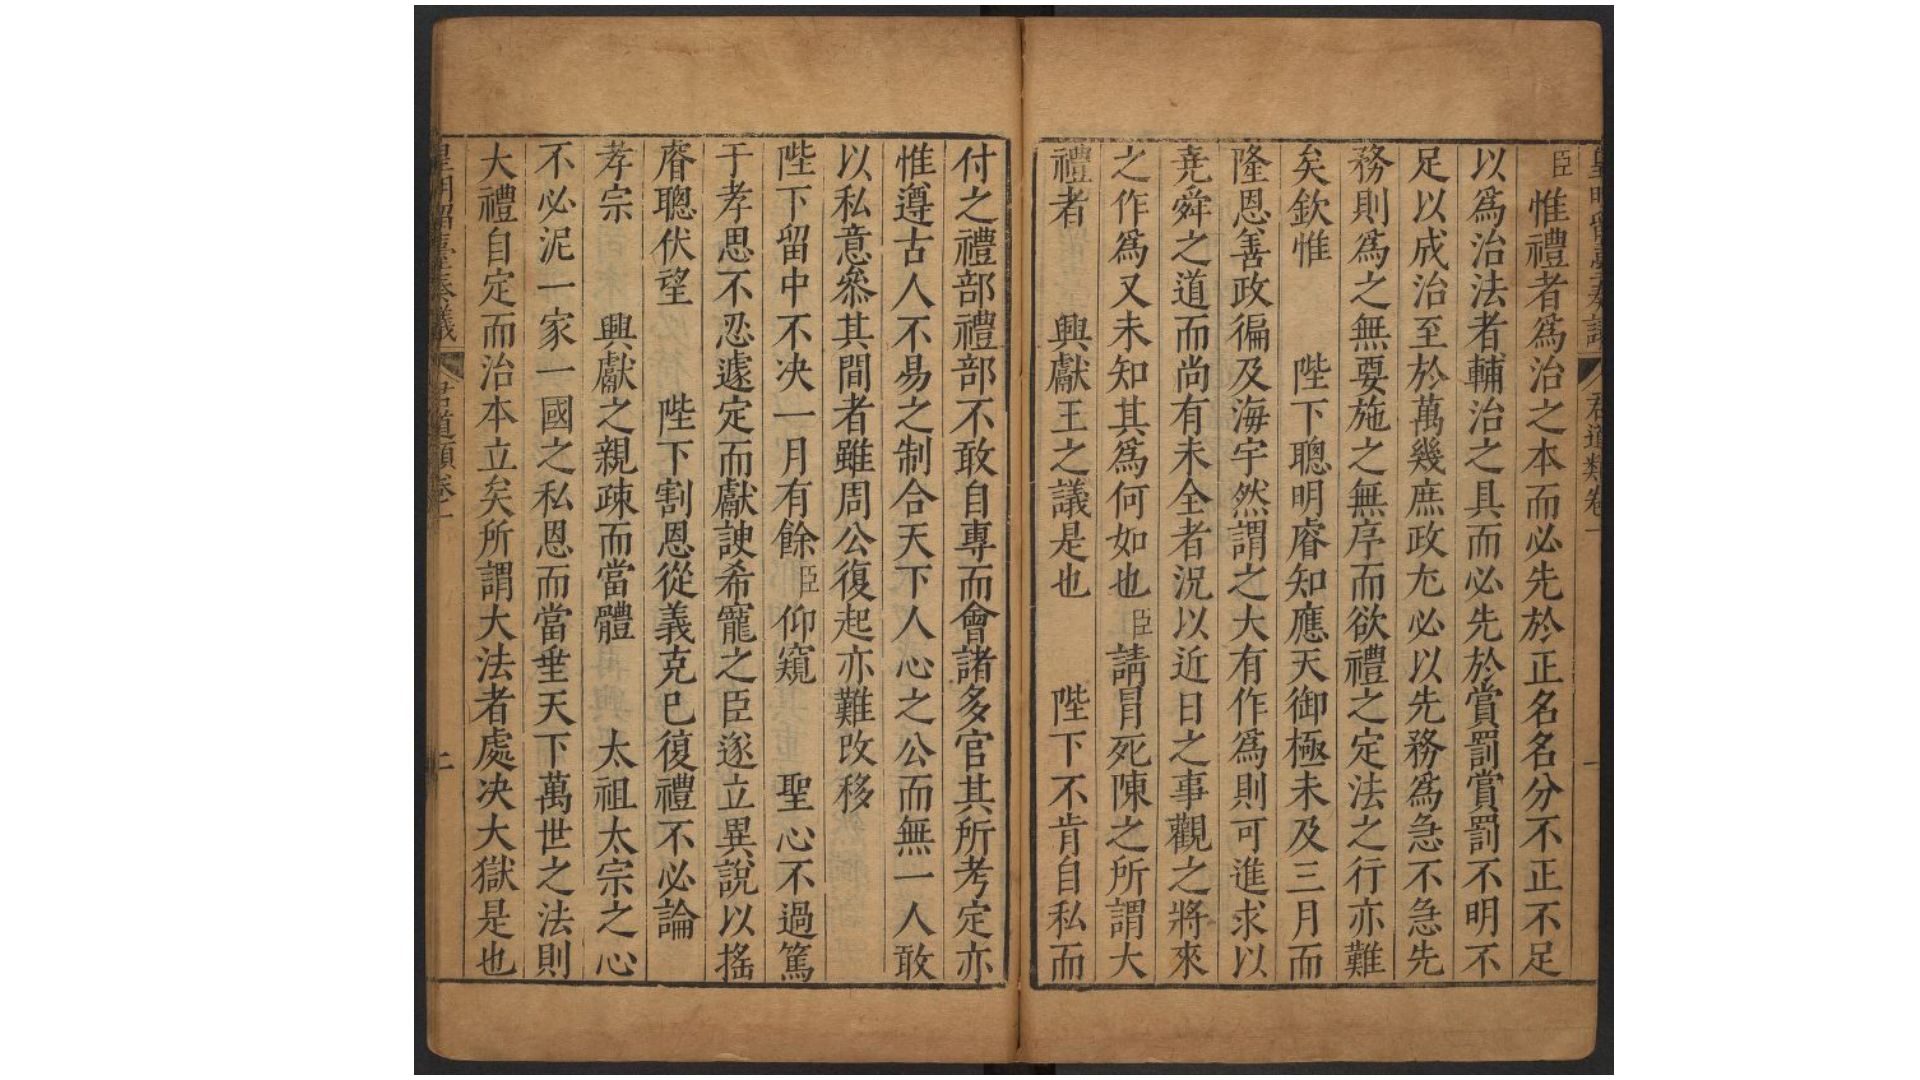 皇明留臺奏議 君道類卷一 一
臣惟禮者爲治之本而必先於正名名分不正不足
以爲治法者輔治之具而必先於賞罰賞罰不明不
足以成治至於萬幾庶政尤必以先務爲急不急先
務則爲之無要施之無序而欲禮之定法之行亦難
矣欽惟 陛下聰明睿知應天御極未及三月而
隆恩善政徧及海宇然謂之大有作爲則可進求以
尭舜之道而尚有未全者況以近日之事觀之將來
之作爲又未知其爲何如也臣請冒死陳之所謂大
禮者 興獻王之議是也 陛下不肯自私而
付之禮部禮部不敢自專而會諸多官其所考定亦
惟遵古人不易之制合天下人心之公而無一人敢
以私意叅其間者雖周公復起亦難改移
陛下留中不决一月有餘臣仰窺 聖心不過篤
于孝思不忍遽定而獻諛希寵之臣遂立異說以搖
睿聰伏望 陛下割恩從義克已復禮不必論
孝宗 興獻之親疎而當體 太祖太宗之心
不必泥一家一國之私恩而當垂天下萬世之法則
大禮自定而治本立矣所謂大法者處决大獄是也
皇明留臺奏議 君道類卷一 二